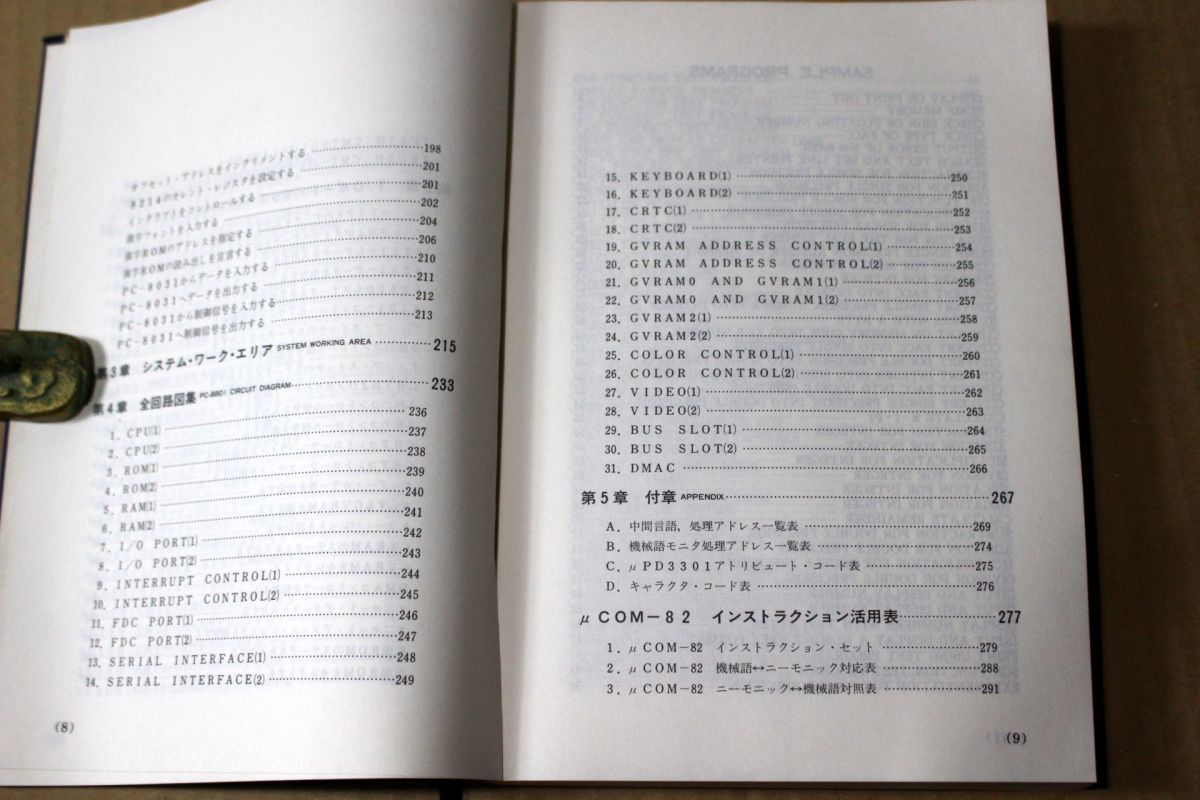 オフセット・アドレスをインクリメントする……………198
8214のカレント・レジスタを設定する……………201
インタラプトをコントロールする……………201
漢字フォントを入力する……………202
漢字ROMのアドレスを指定する……………204
漢字ROMの読み出しを宣言する……………206
PC-8031からデータを入力する……………210
PC-8031へデータを出力する……………211
PC-8031から制御信号を入力する……………212
PC-8031へ制御信号を出力する……………213
第3章 システム・ワーク・エリア SYSTEM WORKING AREA……………215
第4章 全回路図集 PC-8801 CIRCUIT DIAGRAM……………233
1. CPU(1)……………236
2. CPU(2)……………237
3. ROM(1)……………238
4. ROM(2)……………239
5. RAM(1)……………240
6. RAM(2)……………241
7. I/O PORT(1)……………242
8. I/O PORT(2)……………243
9. INTERRUPT CONTROL(1)……………244
10. INTERRUPT CONTROL(2)……………245
11. FDC PORT(1)……………246
12. FDC PORT(2)……………247
13. SERIAL INTERFACE(1)……………248
14. SERIAL INTERFACE(2)……………249
(8)
15. KEYBOARD(1)……………250
16. KEYBOARD(2)……………251
17. CRTC(1)……………252
18. CRTC(2)……………253
19. GVRAM ADDRESS CONTROL(1)……………254
20. GVRAM ADDRESS CONTROL(2)……………255
21. GVRAM0 AND GVRAM1(1)……………256
22. GVRAM0 AND GVRAM1(2)……………257
23. GVRAM2(1)……………258
24. GVRAM2(2)……………259
25. COLOR CONTROL(1)……………260
26. COLOR CONTROL(2)……………261
27. VIDEO(1)……………262
28. VIDEO(2)……………263
29. BUS SLOT(1)……………264
30. BUS SLOT(2)……………265
31. DMAC……………266
第5章 付章 APPENDIX……………267
A. 中間言語，処理アドレス一覧表……………269
B. 機械語モニタ処理アドレス一覧表……………274
C. μPD3301アトリビュート・コード表……………275
D. キャラクタ・コード表……………276
μCOM-82 インストラクション活用表……………277
1. μCOM-82 インストラクション・セット……………279
2. μCOM-82 機械語↔ニーモニック対応表……………288
3. μCOM-82 ニーモニック↔機械語対照表……………291
(9)